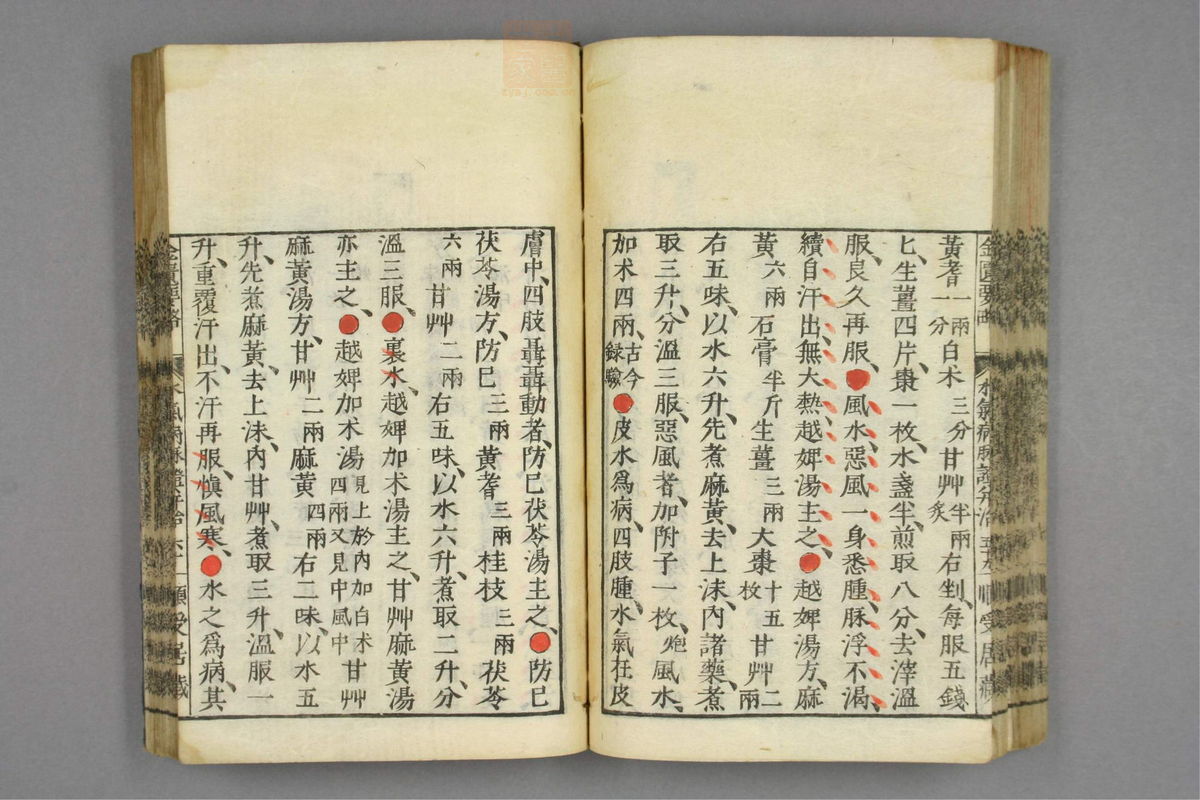 黃耆一兩一分白朮三分甘艸半兩炙右剉每服五錢
匕、生薑四片、棗一枚、水盞半、煎取八分、去滓溫
服、良久再服、●風水惡風一身悉腫、脈浮不渴、
續自汗出、無大熱、越婢湯主之、●越婢湯方、麻
黃六兩石膏半斤生薑三兩大棗十五枚甘艸二兩
右五味、以水六升、先煮麻黃、去上沫、內諸藥、煮
取三升、分溫三服、惡風者、加附子一枚、炮風水、
加朮四兩、古今録驗●皮水爲病、四肢腫、水氣在皮
膚中、四肢聶聶動者、防已茯苓湯主之、●防已
茯苓湯方、防已三兩黃耆三兩桂枝三兩茯苓
六兩甘艸二兩右五味、以水六升、煮取二升、分
溫三服、●裏水、越婢加朮湯主之、甘艸麻黃湯
亦主之、●越婢加朮湯見上於內加白朮四兩又見中風中甘艸
麻黃湯方、甘艸二兩麻黃四兩右二味、以水五
升、先煮麻黃、去上沫、內甘艸、煮取三升、溫服一
升、重覆汗出、不汗再服、愼風寒、●水之爲病、其